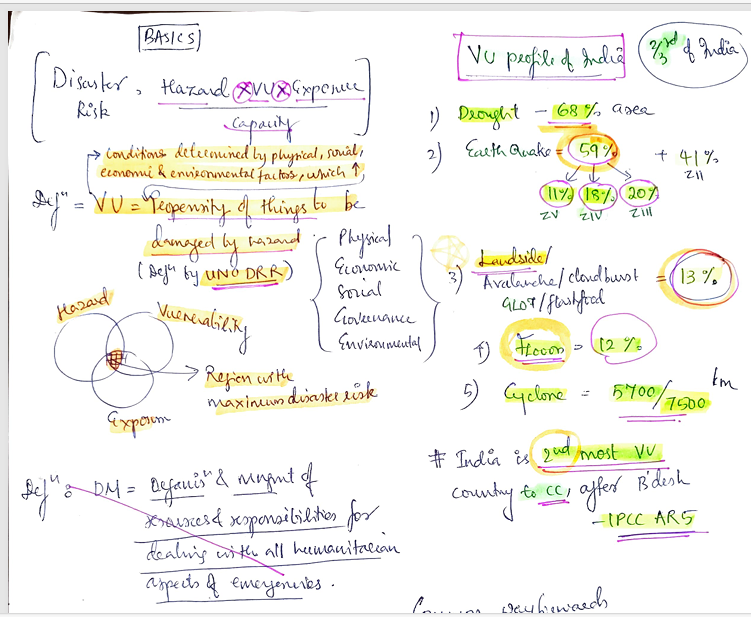 BASICS
Disaster Risk = Hazard X VU X Exposure
Capacity
→ Conditions determined by physical, social,
economic & environmental factors, which ↑
Defⁿ = VU = Propensity of things to be
damaged by hazard
(Defⁿ by UNO DRR)
Physical
Economic
Social
Governance
Environmental
Hazard
Vulnerability
Exposure
→ Region with
maximum disaster risk
Defⁿ: DM = Organisⁿ & Mngmt of
resources & responsibilities for
dealing with all humanitarian
aspects of emergencies.
VU profile of India
2/3rd of India
1) Drought – 68% area
2) Earth Quake = 59% + 41%
ZII
11% 18% 20%
ZV ZIV ZIII
3) Landslide/
Avalanche/cloudburst = 13%
GLOF/flashflood
4) Floods = 12%
5) Cyclone = 5700/7500 km
# India is 2nd most VU
country to CC, after B'desh
– IPCC AR5